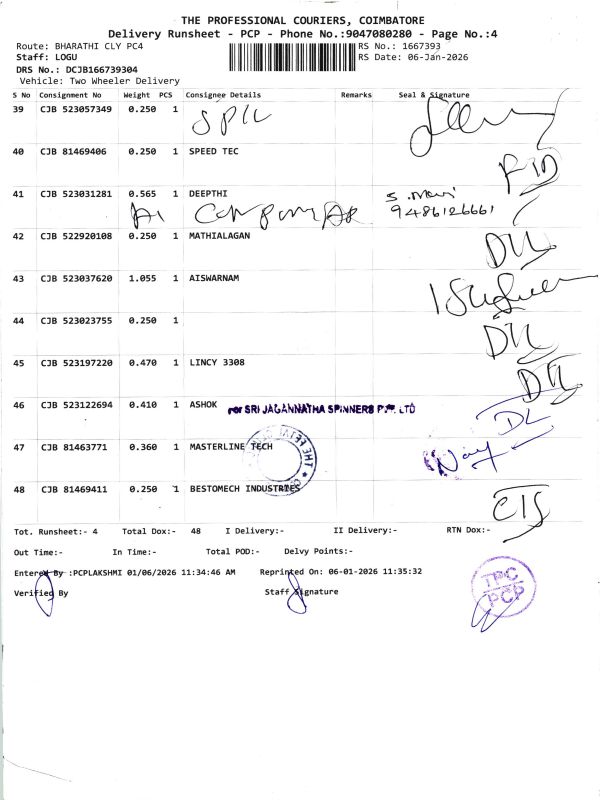 THE PROFESSIONAL COURIERS, COIMBATORE
Delivery Runsheet - PCP - Phone No.:9047080280 - Page No.:4
Route: BHARATHI CLY PC4 RS No.: 1667393
Staff: LOGU RS Date: 06-Jan-2026
DRS No.: DCJB166739304
Vehicle: Two Wheeler Delivery
S No Consignment No Weight PCS Consignee Details Remarks Seal & Signature
39 CJB 523057349 0.250 1
40 CJB 81469406 0.250 1 SPEED TEC
41 CJB 523031281 0.565 1 DEEPTHI
9486126661
42 CJB 522920108 0.250 1 MATHIALAGAN
43 CJB 523037620 1.055 1 AISWARNAM
44 CJB 523023755 0.250 1
45 CJB 523197220 0.470 1 LINCY 3308
46 CJB 523122694 0.410 1 ASHOK for SRI JAGANNATHA SPINNERS PVT. LTD
DL
47 CJB 81463771 0.360 1 MASTERLINE TECH
48 CJB 81469411 0.250 1 BESTOMECH INDUSTRIES
Tot. Runsheet:- 4 Total Dox:- 48 I Delivery:- II Delivery:- RTN Dox:-
Out Time:- In Time:- Total POD:- Delvy Points:-
Entered By :PCPLAKSHMI 01/06/2026 11:34:46 AM Reprinted On: 06-01-2026 11:35:32
Verified By Staff Signature
TPC
PCP